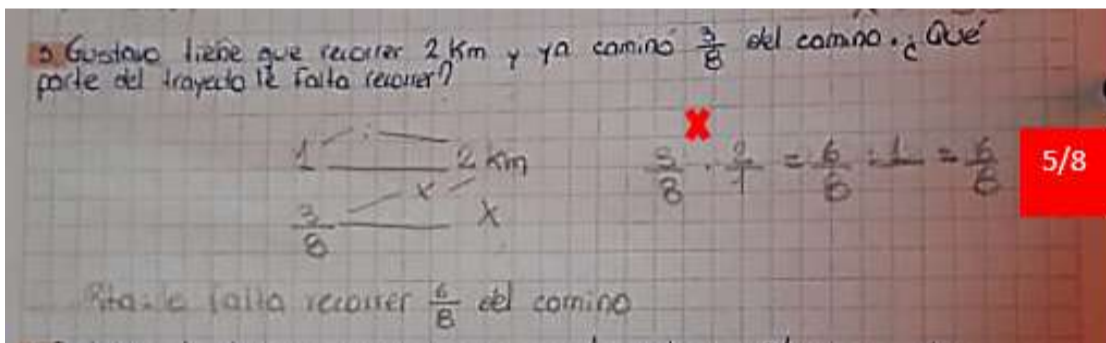 3. Gustavo tiene que recorrer 2 Km y ya caminó 3/8 del camino. ¿Qué
parte del trayecto le falta recorrer?
1 : 2 Km
3/8 x X
3/8 · 2/1 = 6/8 : 1 = 6/8
5/8
Rta: le falta recorrer 6/8 del camino